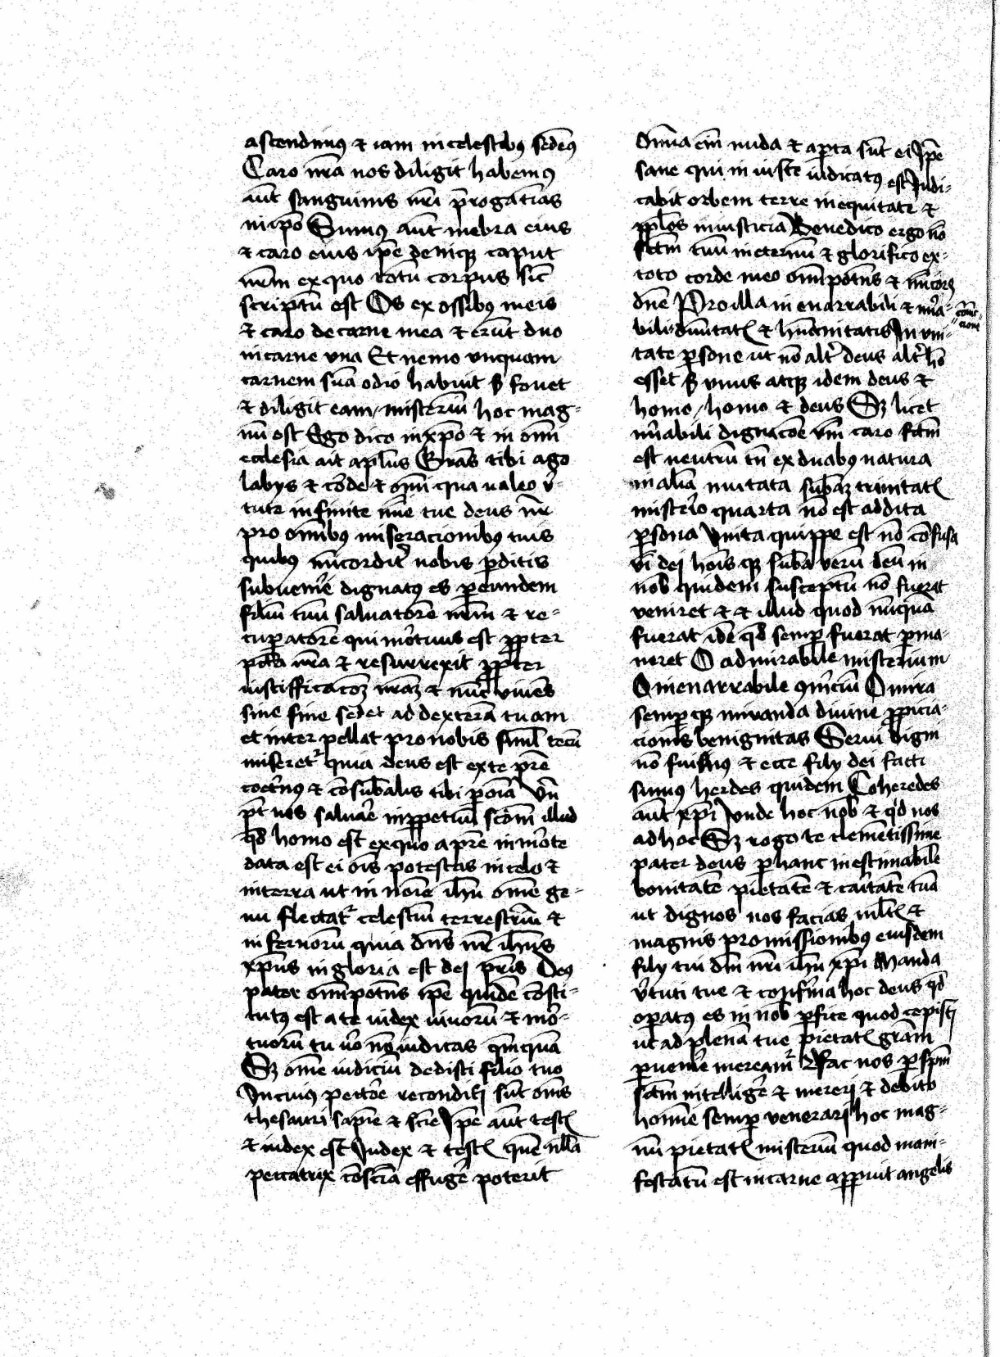 ascendimus et iam in celestibus sedem9
Caro nr̄a nos diligit habem9
aūt sanguinis nr̄i p̄rogatīas
in ip̄o Sum9 aūt mēbra eius
& caro eius ip̄e deniqꝫ caput
nr̄m ex quo totū corpus sic̄
scriptū est Os ex ossibus meis
& caro de carne mea & erūt duo
in carne vna Et nemo vnquam
carnem suā odio habuit ꝫ fouet
& diligit eam / misteriū hoc mag-
nū est Ego dico in xp̄o & in om̄i
ecclesia ait apl̄us Grās tibi ago
labijs & corde & om̄i qua ualeo v̄-
tute infinite mīe tue deus nr̄
pro om̄ibus miseracionibus tuis
quibus mīcorditer nobis ꝑditis
subuenire dignatus es ꝑ eundem
filiū tuū saluatorē nr̄m & re-
cuꝑatorē qui mortuus est ꝓpter
pc̄ca nr̄a & resurrexit ꝓpter
iustifficacōꝫ nr̄aꝫ & nūc viuēs
sine fine sedet ad dexterā tuam
et inter pellat pro nobis siml̄ tecū
miseret᷑ quia deus est ex te pr̄e
coet̄nus & cōsubstālis tibi ꝑ oīa Vn̄
pt̄ nos saluare in ꝑpetuū Scd̄m illud
qd̄ homo est ex quo a pr̄e in morte
data est ei ois potestas in celo &
in terra ut in noīe ih̄u om̄e ge-
nu flectat᷑ celestiū terrestriū &
in fernorū quia dn̄s nr̄ ih̄us
xp̄us in gloria est dei pr̄is Deus
pater om̄ipotens ip̄e quidē cōsti-
tutus est a te iudex uiuorū & mor-
tuorū tu vero nō iudicas qm̄quā
Sꝫ om̄e iudiciū dedisti filio tuo
In cuius pectore reconditi sūt om̄s
thesauri sapīe & scīe Ip̄e aūt testis
& iudex est Iudex & testis quē nl̄la
peccatrix cōscīa effugere poterit
Om̄ia em̄ nuda & aꝑta sūt ei Ip̄e
sane qui in iuste iudicatus est Iudi-
cabit orbem terre in equitate &
ppl̄os in iusticia Benedico ergo nō
sc̄m tuū in eternū & glorifico ex
toto corde meo om̄ipotens & mīcors
dn̄e Pro illa in enarrabili & mira-
bili diuinitatis & hūanitatis In vni-
tate ꝑsone ut nō alter deus alter hō
esset ꝫ vnus atqꝫ idem deus &
homo / homo & deus Sꝫ licet
mirabili dignacōe vm̄ caro sc̄m
est neutrū tn̄ ex duabus natura
in aliā mutata subaꝫ trinitatis
misterio quarta nō est addita
ꝑsona Vnita quippe est nō cōfusa
vi dei hoīs qꝫ suba verū deū in
nob quidem susceptū nō fuerat
veniret & & illud quod nūquā
fuerat idē qd̄ semꝑ fuerat ꝑma-
neret O admirabile misterium
O inenarrabile comerciū O mira
semꝑ qꝫ miranda diuine ꝓpicia-
cionis benignitas Serui digni
nō fuimus & ecce filij dei facti
sumus herdes quidem Coheredes
aūt xp̄i Vnde hoc nob & qd̄ nos
ad hoc Sꝫ rogo te clemētissime
pater deus ꝑ hanc inestimabilē
bonitatē pietatē & caritatē tuā
ut dignos nos facias mltis &
magnis promissionibus eiusdem
filij tui dn̄i nr̄i ih̄u xp̄i Manda
v̄tuti tue & confirma hoc deus qd̄
oꝑatus es in nob ꝑfice quod cepisti
ut ad plenā tue pietatis grām
ꝑuenire mereamur Fac nos ꝑ sp̄m
sc̄m intelligere & mereri & debito
honore semꝑ venerari hoc mag-
nū pietatis misteriū quod mani-
festatū est in carne apparuit angelis